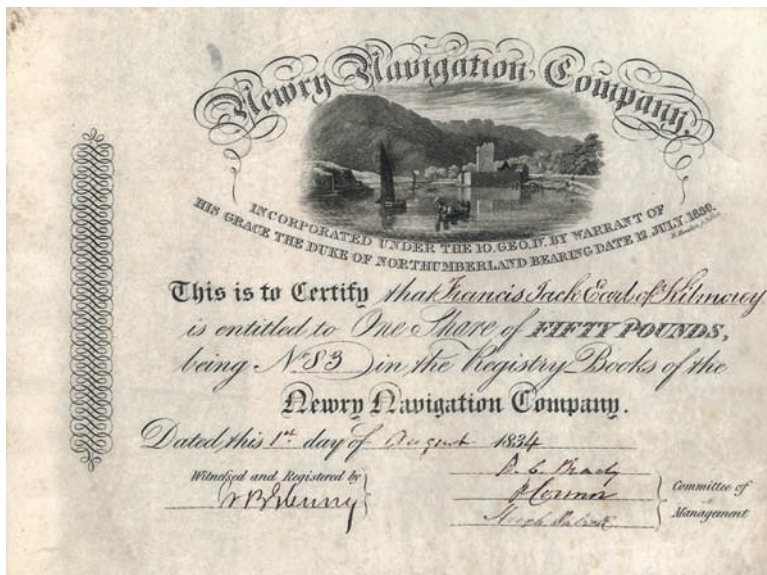 Newry Navigation Company.
INCORPORATED UNDER THE 10. GEO. IV. BY WARRANT OF
HIS GRACE THE DUKE OF NORTHUMBERLAND BEARING DATE 12 JULY. 1830.
This is to Certify that Francis Jack Earl of Kilmorey
is entitled to One Share of FIFTY POUNDS,
being No. 83 in the Registry Books of the
Newry Navigation Company.
Dated this 1st day of August 1834
Witnessed and Registered by
D. C. Brady
Connor
Joseph
Committee of
Management